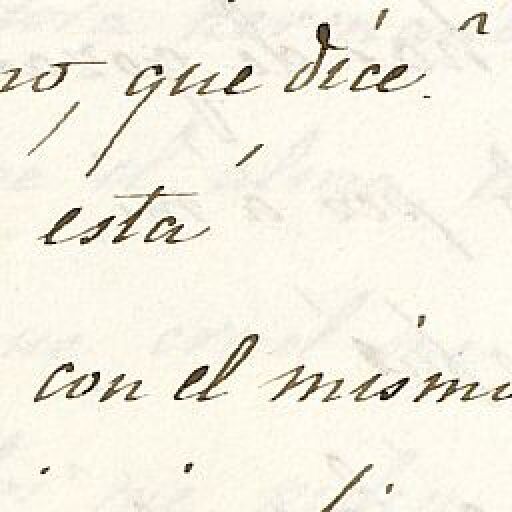 no, que dice.
está
con el mismo